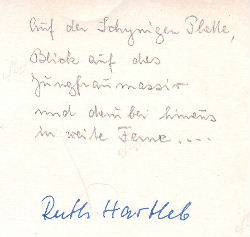 Auf der Schynigen Platte,
Blick auf das
Jungfraumassiv
und darüber hinaus
in weite Ferne....
Ruth Hartleb